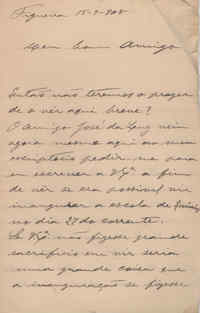 Figueira 15-9-908
Meu bom Amigo
Então não teremos o prazer
de o ver aqui breve?
O amigo José da Luz veio
agora mesmo aqui ao meu
escriptorio pedir-me para
eu escrever a V. Ex.ª a fim
de vêr se era possivel vir
inaugurar a escola de
no dia 27 do corrente.
Se V. Ex.ª não fizesse grande
sacrificio em vir seria
uma grande coisa que
a inauguração se fizesse